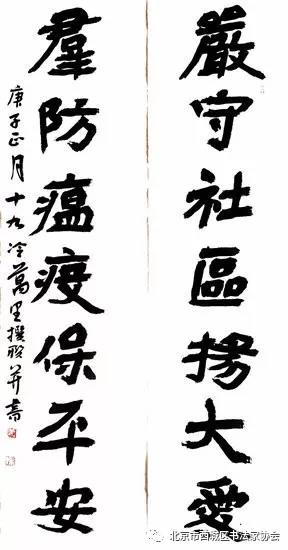 嚴守社區揚大愛
羣防瘟疫保平安
庚子正月十九冷萬里撰聯并書
北京市西城区书法家协会